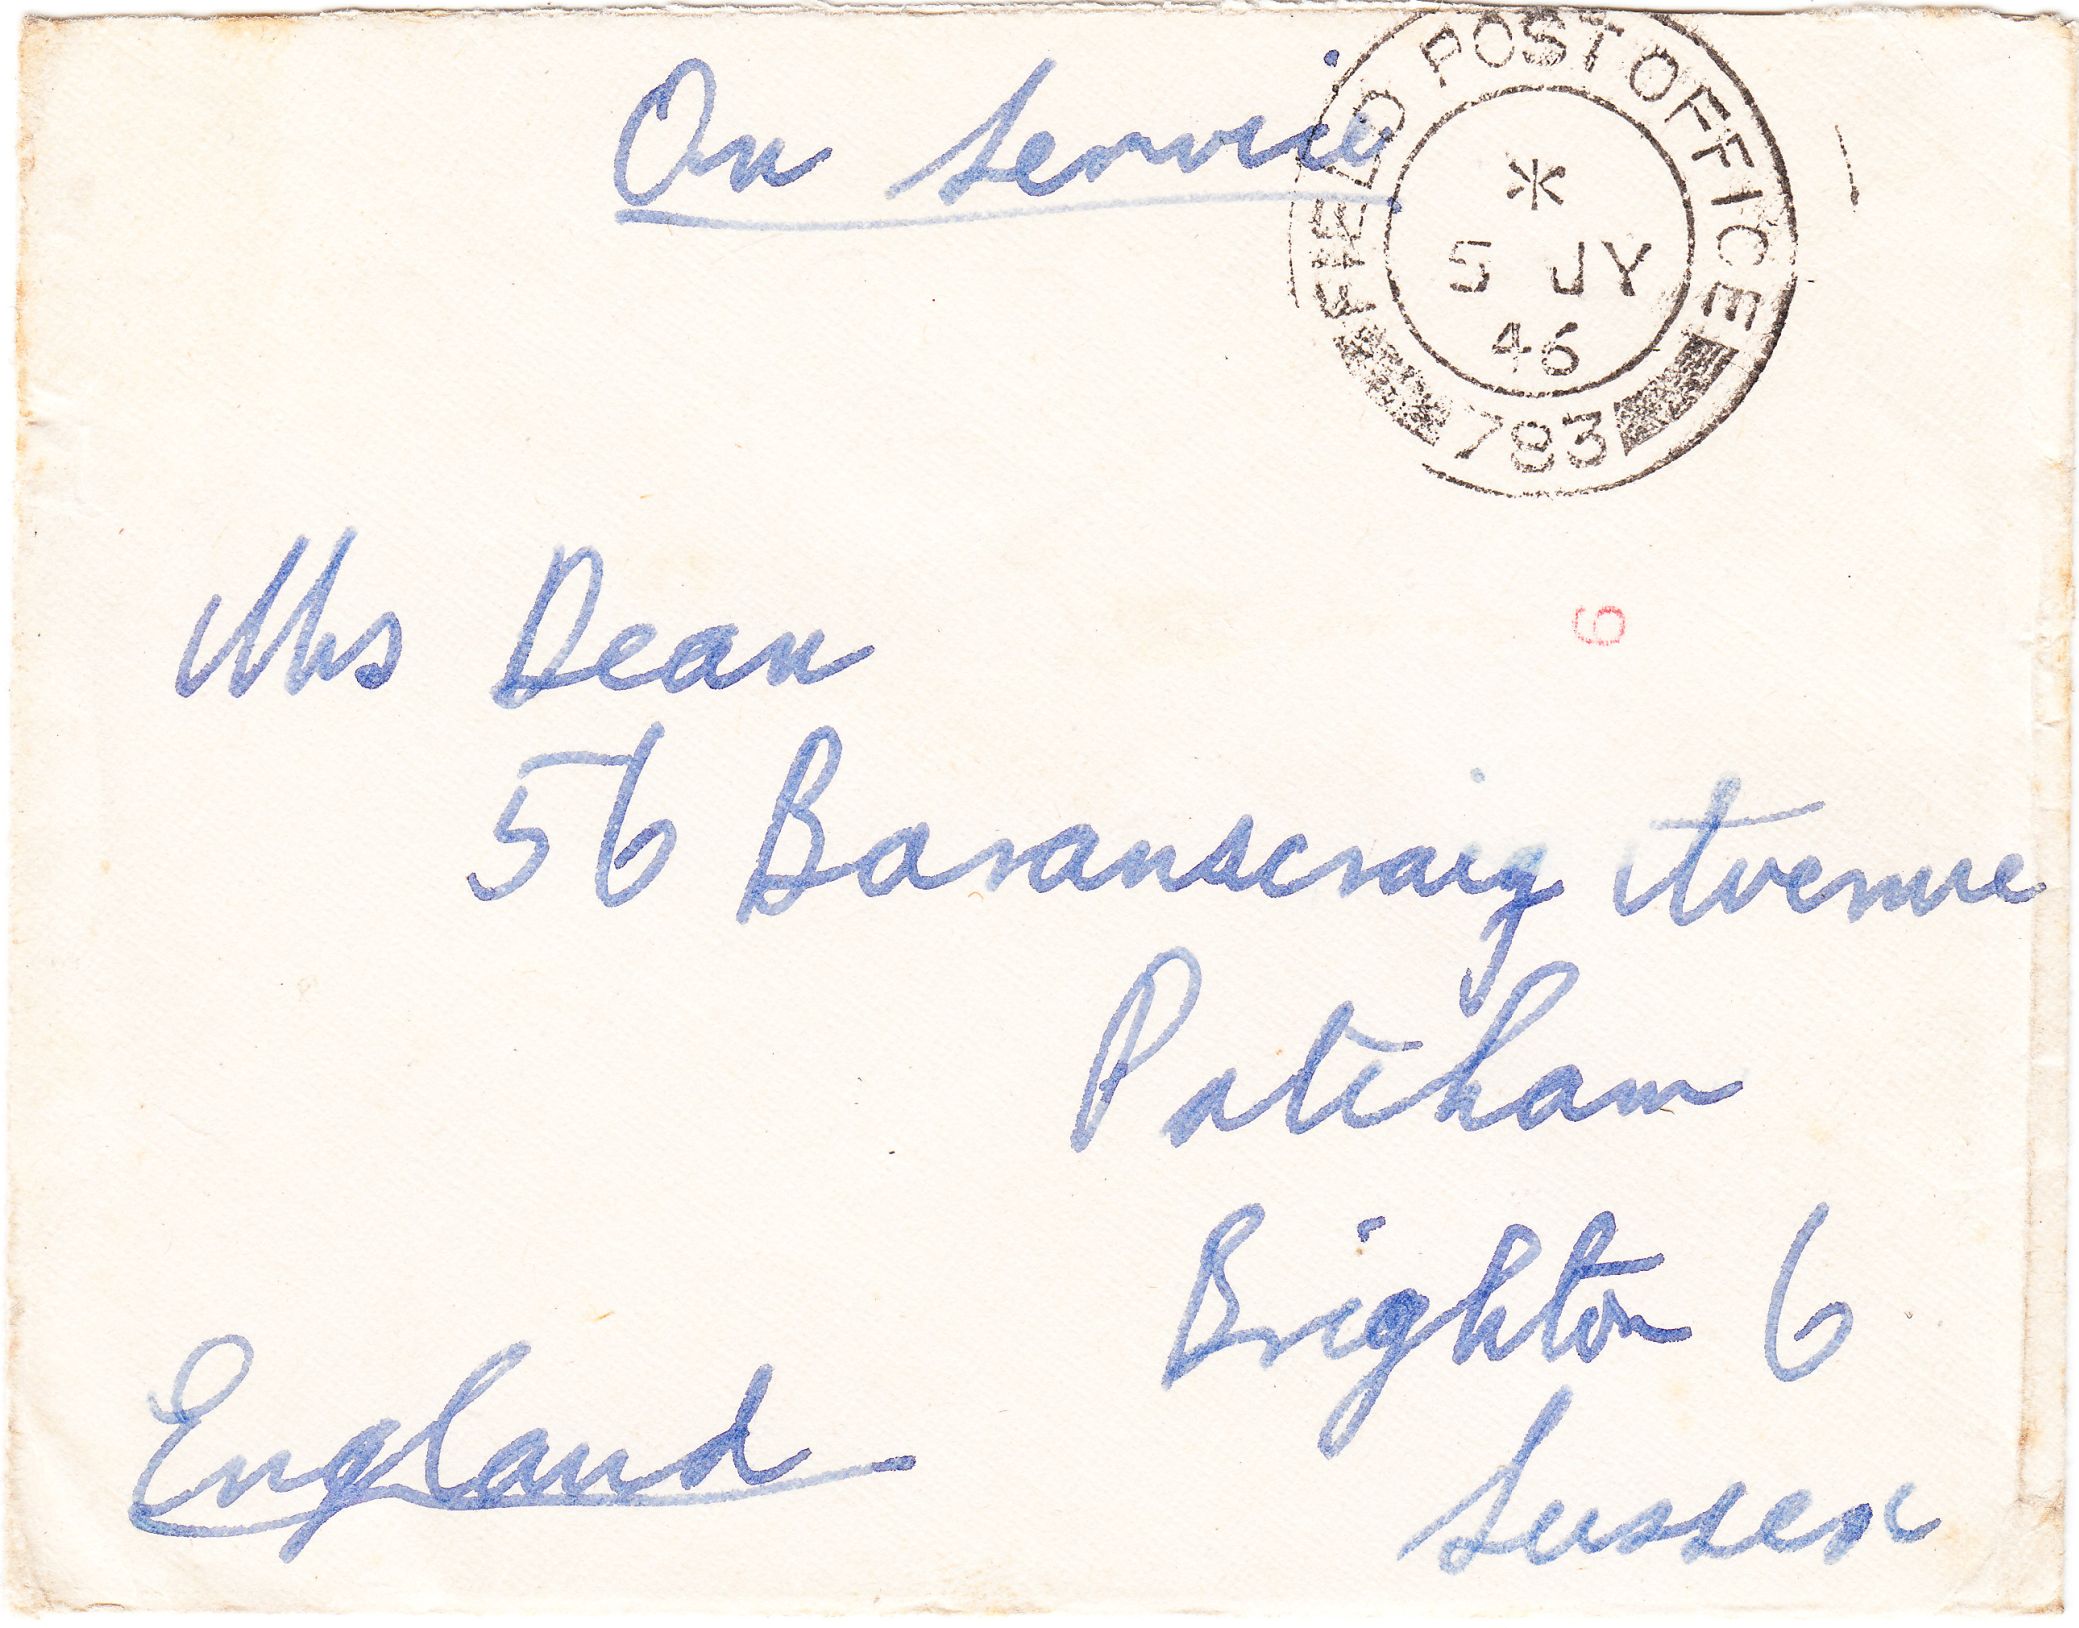 On Service
FIELD POST OFFICE
*
5 JY
46
783
6
Mrs Dean
56 Baranscraig Avenue
Patcham
Brighton 6
Sussex
England